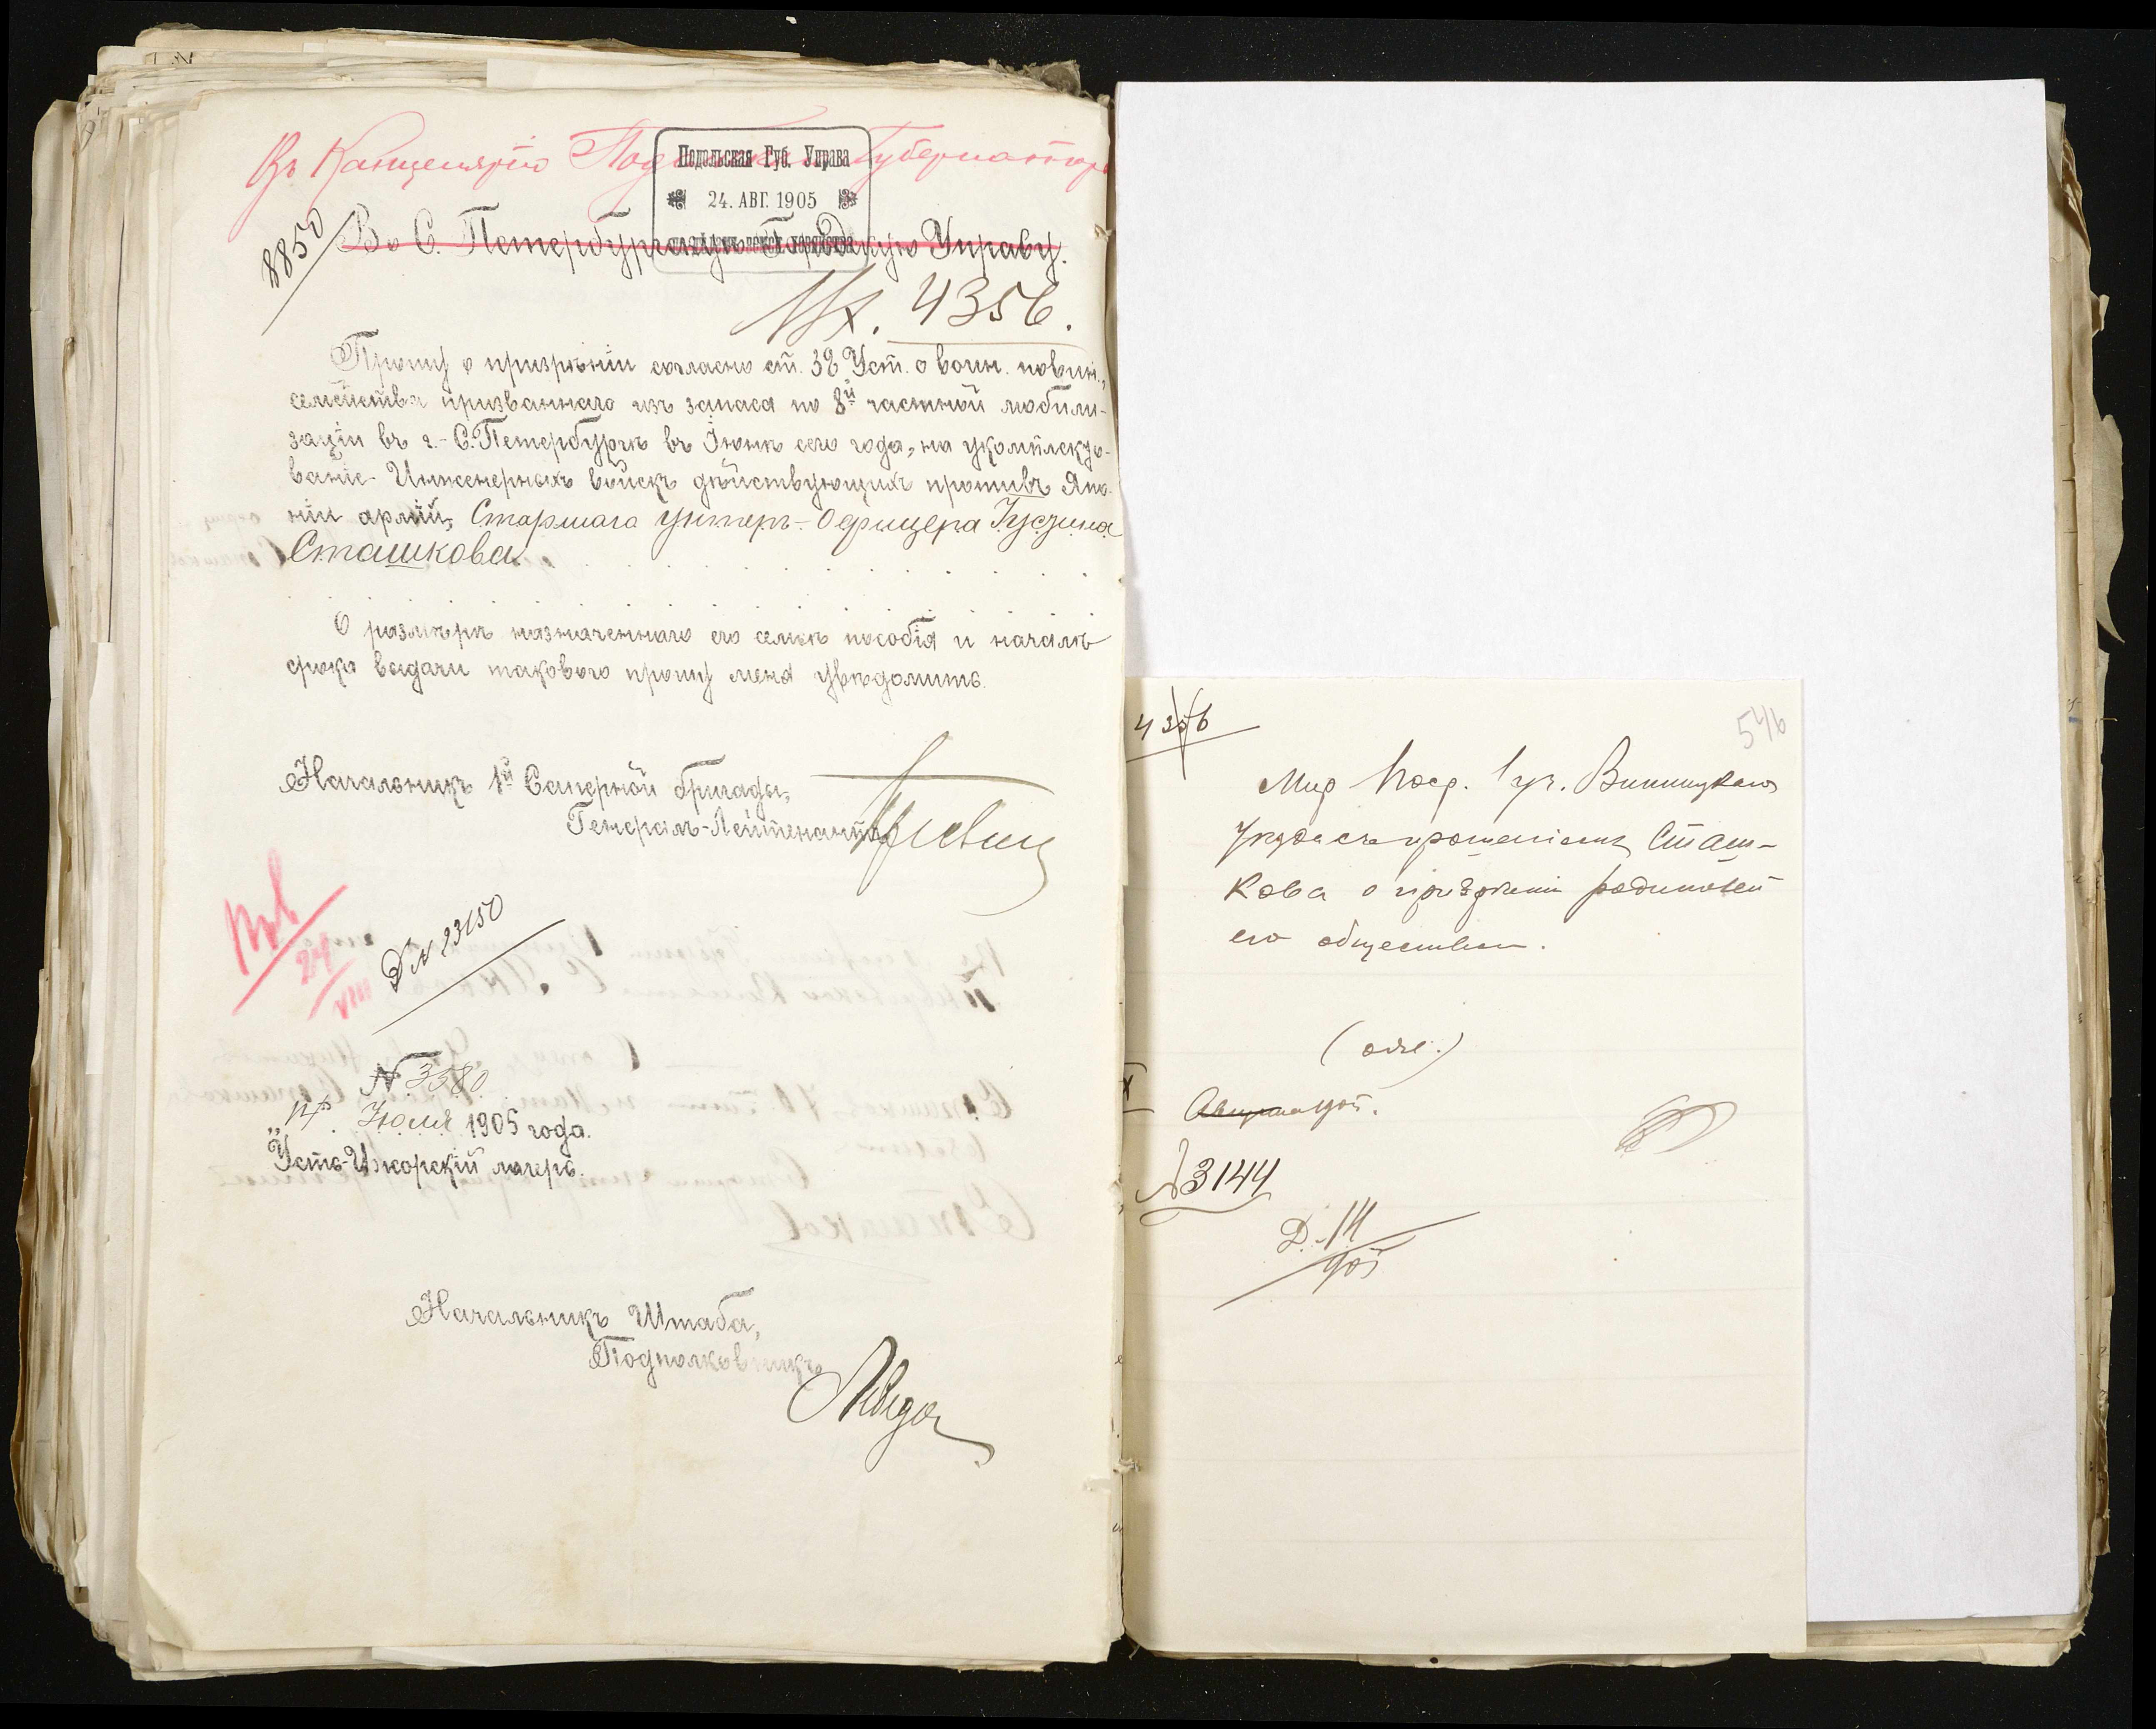 Въ Канцелярію Подольскаго Губернатора
Подольская Губ. Управа
24. АВГ. 1905
8850
Въ С. Петербургскую Городскую Управу.
Вх. 4356.
Прошу о призрѣніи согласно ст. 38 Уст. о воин. повин.,
семейства призваннаго изъ запаса по 8й частной мобили-
заціи въ г. С. Петербургѣ въ Іюнѣ сего года, на укомплекто-
ваніе Инженерныхъ войскъ дѣйствующихъ противъ Япо-
ніи армій, Старшаго унтеръ-Офицера
Сташкова.
О размѣрѣ назначеннаго его семьѣ пособія и началѣ
срока выдачи таковаго прошу меня увѣдомить.
Начальникъ 1й Саперной бригады,
Генералъ-Лейтенантъ
24
VIII
Д № 23150
№ 3580.
"14" Іюля 1905 года.
Усть-Ижорскій лагерь.
Начальникъ Штаба,
Подполковникъ
4356
546
Мир Поср. 1 уч. Винницкаго
уѣзда съ прошеніемъ Сташ-
кова о призрѣніи
его обществом.
Августа 905.
№ 3144
Д. 14
905